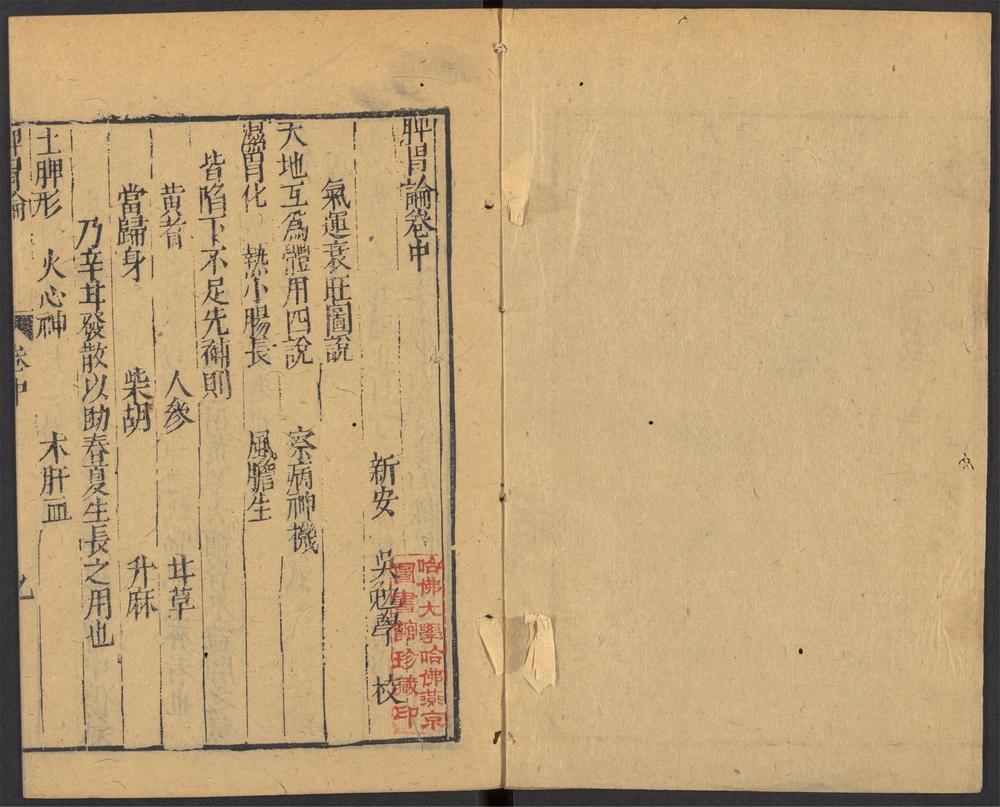 脾胃論卷中
新安 吳勉學 校
氣運衰旺圖說
天地互爲體用四說 察病神機
濕胃化 熱小腸長 風膽生
皆陷下不足先補則
黃耆 人參 甘草
當歸身 柴胡 升麻
乃辛甘發散以助春夏生長之用也
土脾形 火心神 木肝血
脾胃論 卷中
哈佛大學哈佛燕京
圖書館珍藏印